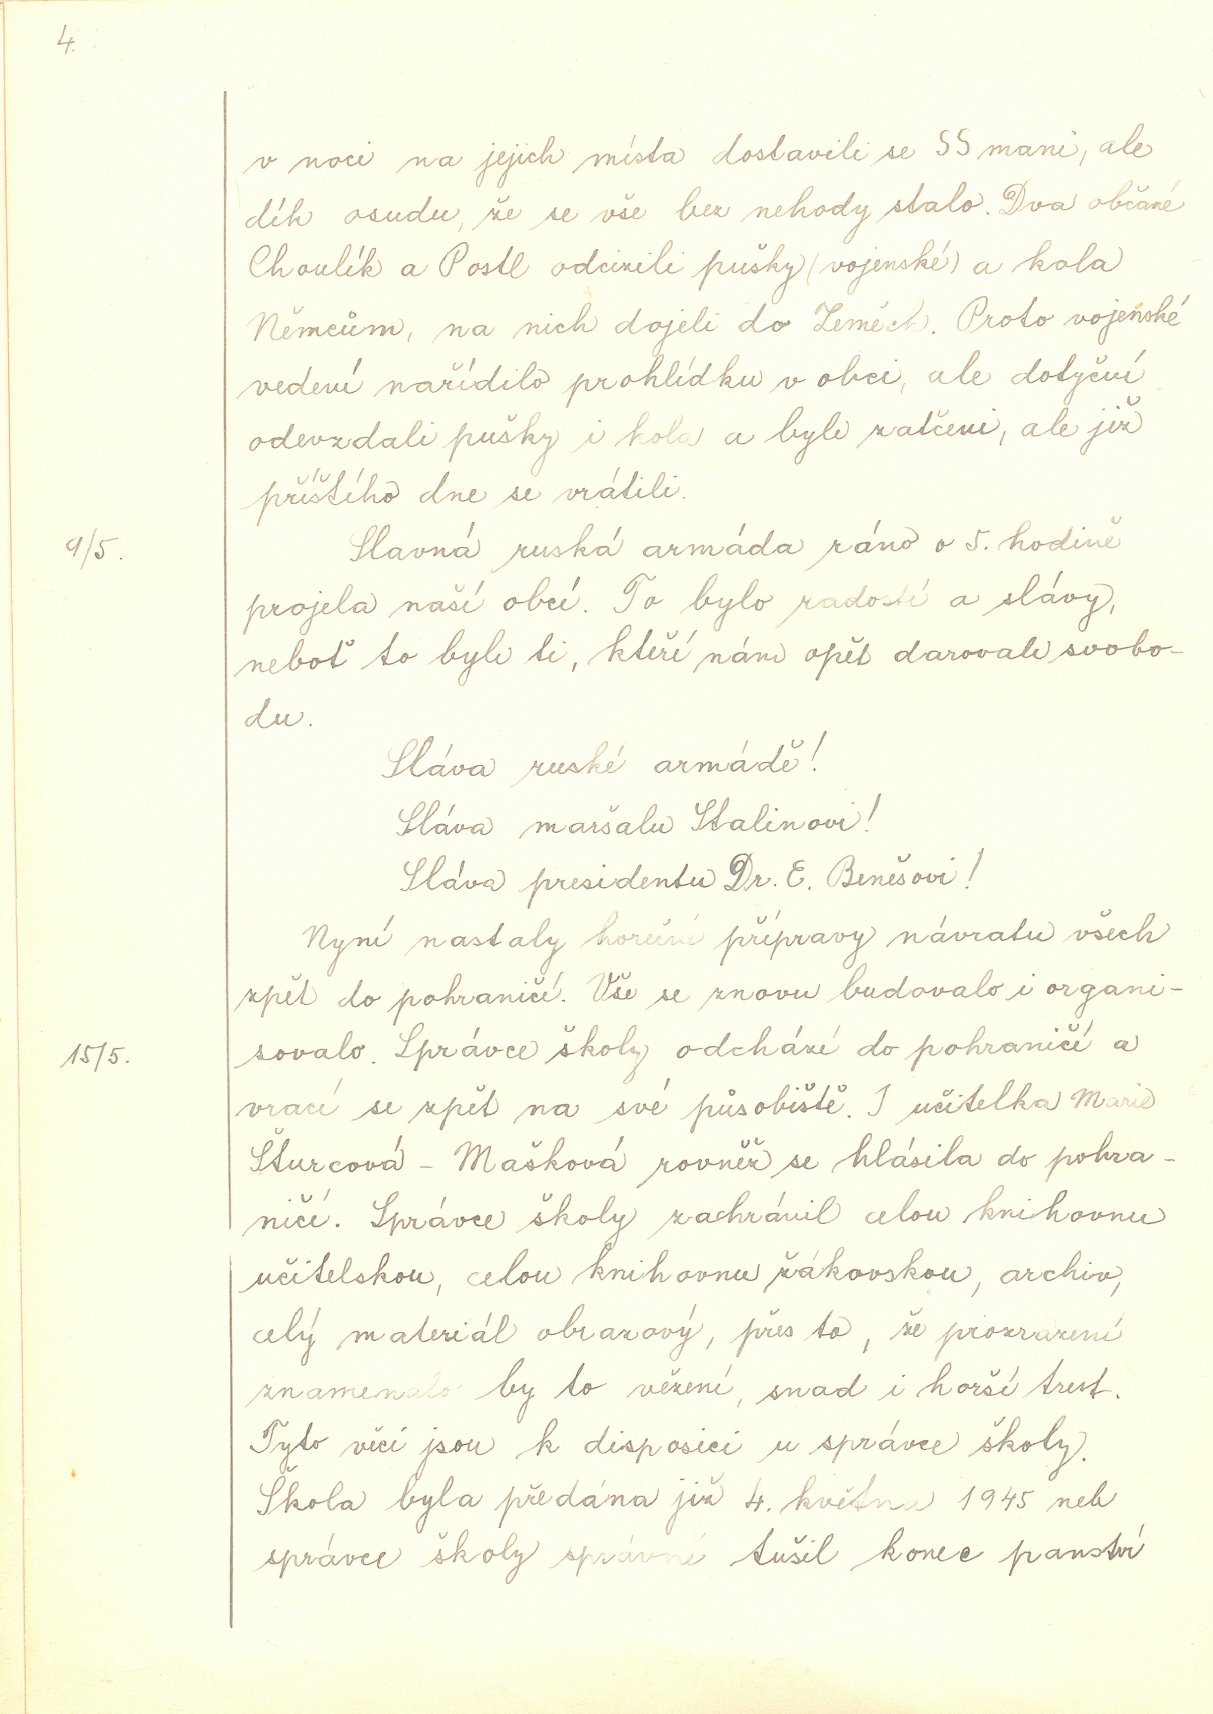 4.
v noci na jejich místa dostavili se SS mani, ale
dík osudu, že se vše bez nehody stalo. Dva občané
Choulík a Postl odcizili pušky (vojenské) a kola
Němcům, na nich dojeli do Zeměch. Proto vojenské
vedení nařídilo prohlídku v obci, ale dotyční
odevzdali pušky i kola a byli zatčeni, ale již
příštího dne se vrátili.
9/5. Slavná ruská armáda ráno o 5. hodině
projela naší obcí. To bylo radosti a slávy,
neboť to byli ti, kteří nám opět darovali svobo-
du.
Sláva ruské armádě!
Sláva maršalu Stalinovi!
Sláva presidentu Dr. E. Benešovi!
Nyní nastaly horečné přípravy návratu všech
zpět do pohraničí. Vše se znovu budovalo i organi-
15/5. sovalo. Správce školy odchází do pohraničí a
vrací se zpět na své působiště. I učitelka Marie
Šturcová - Mašková rovněž se hlásila do pohra-
ničí. Správce školy zachránil celou knihovnu
učitelskou, celou knihovnu žákovskou, archiv,
celý materiál obrazový, přes to, že prozrazení
znamenalo by to vězení, snad i horší trest.
Tyto věci jsou k disposici u správce školy.
Škola byla předána již 4. května 1945 neb
správce školy správně tušil konec panství